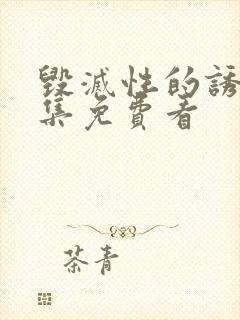 毀滅性的誘
集免費看
茶青